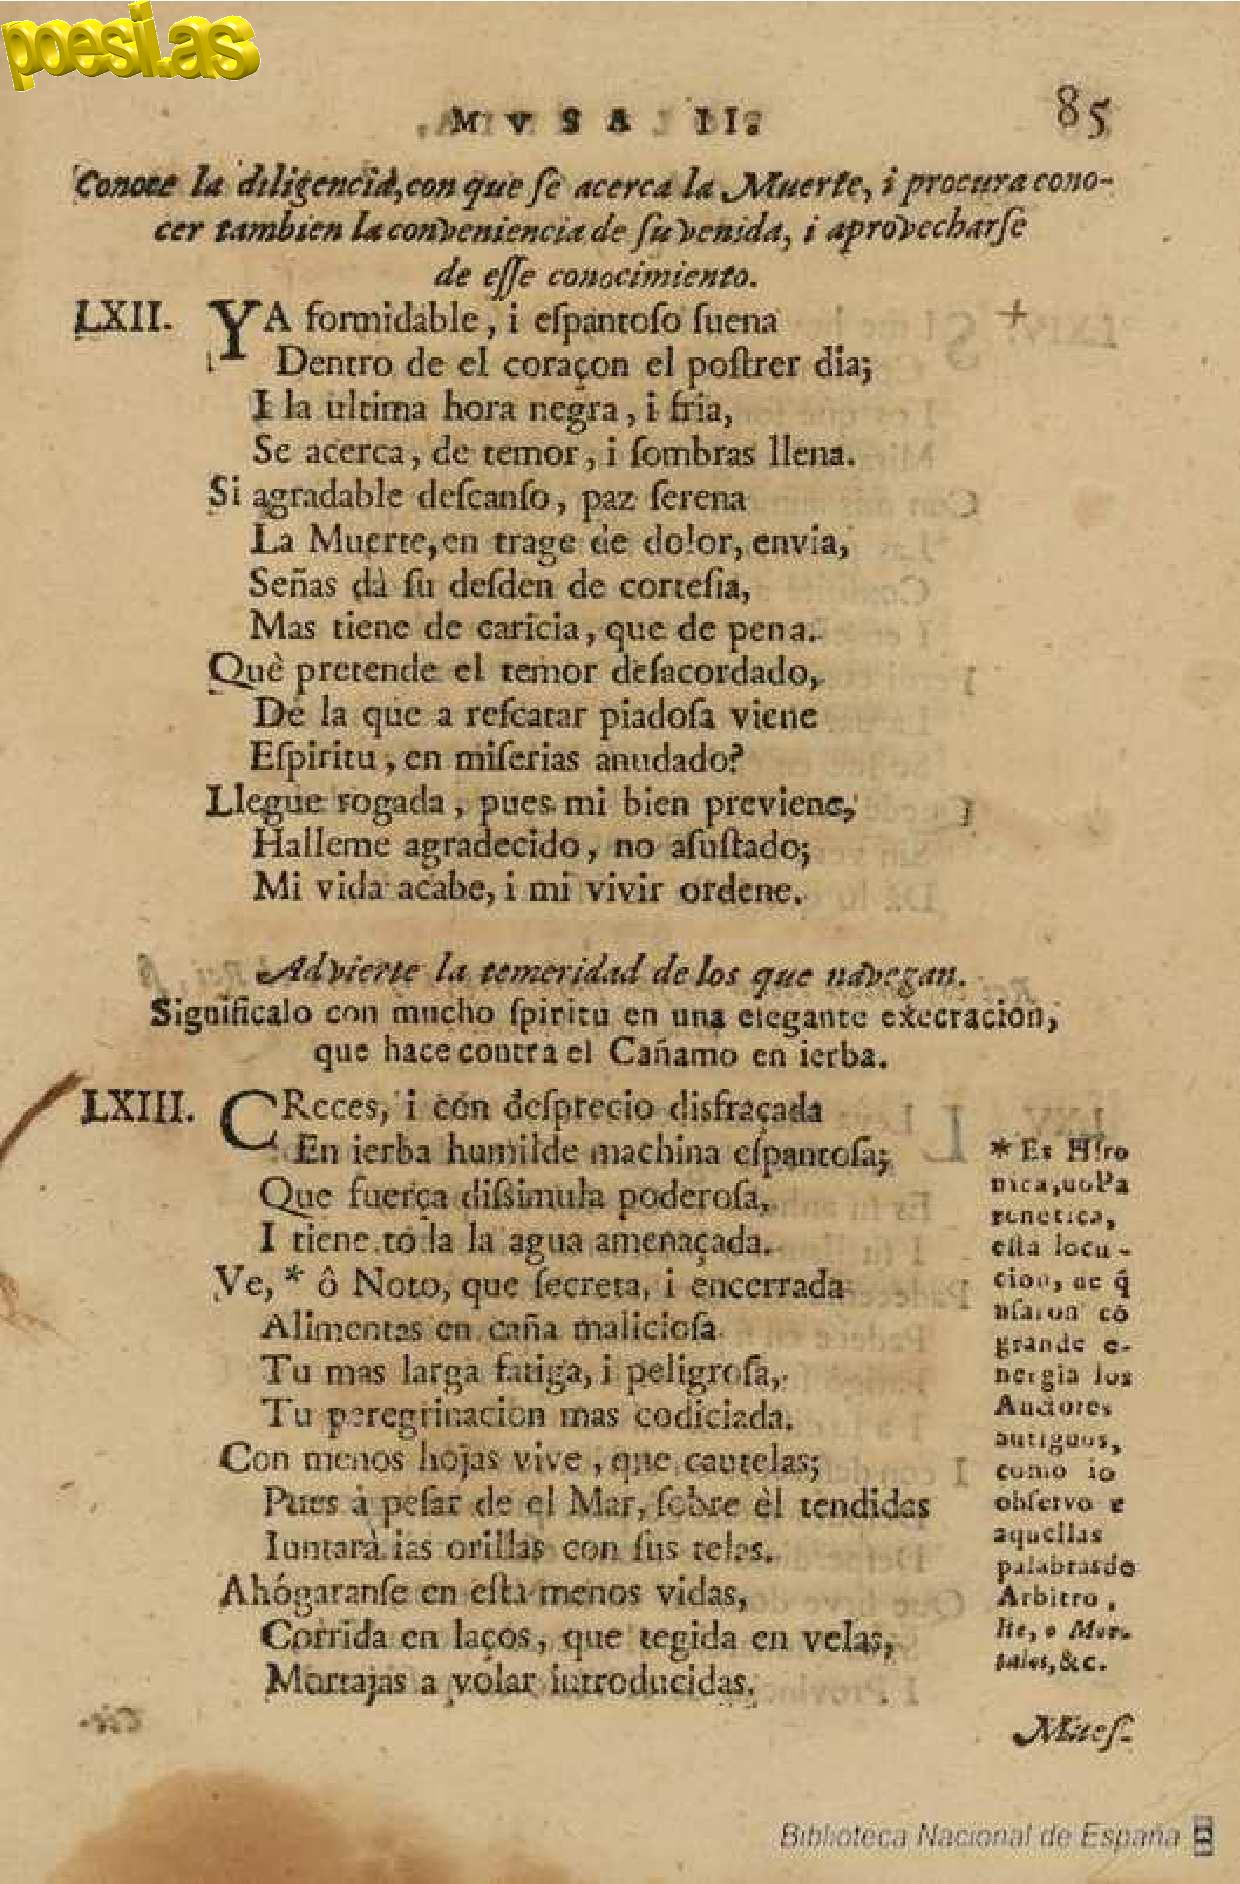 poesi.as
MVSA II.
85
Conoce la diligencia, con que ſe acerca la Muerte, i procura cono-
cer tambien la conveniencia de ſu venida, i aprovecharſe
de eſſe conocimiento.
LXII. YA formidable, i eſpantoſo ſuena
Dentro de el coraçon el poſtrer dia;
I la ultima hora negra, i fria,
Se acerca, de temor, i ſombras llena.
Si agradable deſcanſo, paz ſerena
La Muerte, en trage de dolor, envia,
Señas dà ſu deſden de corteſia,
Mas tiene de caricia, que de pena.
Què pretende el temor deſacordado,
De la que a reſcatar piadoſa viene
Eſpiritu, en miſerias anudado?
Llegue rogada, pues mi bien previene,
Halleme agradecido, no aſuſtado;
Mi vida acabe, i mi vivir ordene.
Advierte la temeridad de los que navegan.
Significalo con mucho ſpiritu en una elegante execracion,
que hace contra el Cañamo en ierba.
LXIII. CReces, i con deſprecio disfraçada
En ierba humilde machina eſpantoſa;
Que fuerça diſsimula poderoſa,
I tiene toda la agua amenaçada.
Ve, * ô Noto, que ſecreta, i encerrada
Alimentas en caña malicioſa
Tu mas larga fatiga, i peligroſa,
Tu peregrinacion mas codiciada.
Con menos hojas vive, que cautelas;
Pues à peſar de el Mar, ſobre èl tendidas
Iuntarà las orillas con ſus telas.
Ahógaranſe en eſta menos vidas,
Corrida en laços, que tegida en velas,
Mortajas a volar introducidas.
* Es Hiro
nica, uo Pa
renetica,
eſta locu-
cion, de q̃
uſaron cõ
grande e-
nergia los
Auctores
antiguos,
como io
obſervo e
aquellas
palabras de
Arbitro,
Ite, o Mor-
tales, &c.
Mueſ-
Biblioteca Nacional de España